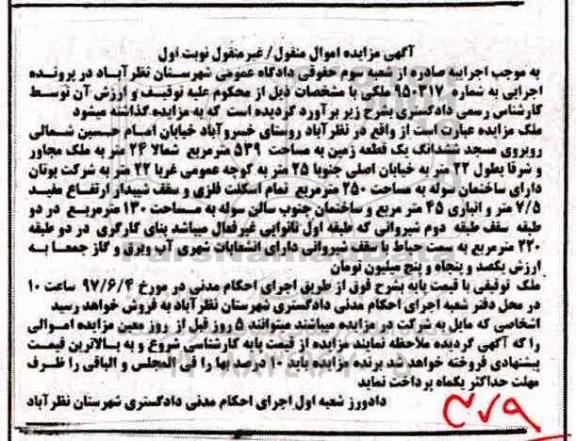 آگهی مزایده اموال منقول/غیرمنقول نوبت اول
به موجب اجراییه صادره از شعبه سوم حقوقی دادگاه عمومی شهرستان نظرآباد در پرونده
اجرایی به شماره ۹۵۰۳۱۷ ملکی با مشخصات ذیل از محکوم علیه توقیف و ارزش آن توسط
کارشناس رسمی دادگستری بشرح زیر برآورد گردیده است که به مزایده گذاشته میشود
ملک مزایده عبارت است از واقع در نظرآباد روستای خسروآباد خیابان امام حسین شمالی
روبروی مسجد ششدانگ یک قطعه زمین به مساحت ۵۳۹ مترمربع شمالا ۲۴ متر به ملک مجاور
و شرقا بطول ۲۲ متر به خیابان اصلی جنوبا ۲۵ متر به کوچه عمومی غربا ۲۲ متر به شرکت پوتان
دارای ساختمان سوله به مساحت ۲۵۰ مترمربع تمام اسکلت فلزی و سقف شیبدار ارتفاع مفید
۷/۵ متر و انباری ۴۵ متر مربع و ساختمان جنوب سالن سوله به مساحت ۱۳۰ مترمربع در دو
طبقه سقف طبقه دوم شیروانی که طبقه اول نانوایی غیرفعال میباشد بنای کارگری در دو طبقه
۲۲۰ مترمربع به سمت حیاط با سقف شیروانی دارای انشعابات شهری آب وبرق و گاز جمعا به
ارزش یکصد و پنجاه و پنج میلیون تومان
ملک توقیفی با قیمت پایه بشرح فوق از طریق اجرای احکام مدنی در مورخ ۹۷/۶/۴ ساعت ۱۰
در محل دفتر شعبه اجرای احکام مدنی دادگستری شهرستان نظرآباد به فروش خواهد رسید
اشخاصی که مایل به شرکت در مزایده میباشند میتوانند ۵ روز قبل از روز معین مزایده اموالی
را که آگهی گردیده ملاحظه نمایند مزایده از قیمت پایه کارشناسی شروع و به بالاترین قیمت
پیشنهادی فروخته خواهد شد برنده مزایده باید ۱۰ درصد بها را فی المجلس و الباقی را ظرف
مهلت حداکثر یکماه پرداخت نماید
دادورز شعبه اول اجرای احکام مدنی دادگستری شهرستان نظرآباد